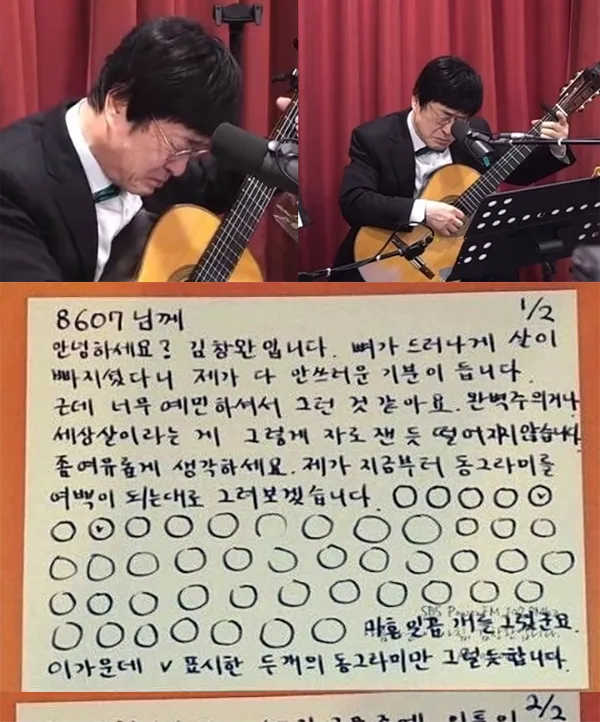 8607님께
1/2
안녕하세요? 김창완입니다. 뼈가 드러나게 살이
빠지셨다니 제가 다 안쓰러운 기분이 듭니다.
근데 너무 예민하셔서 그런 것 같아요. 완벽주의거나
세상살이라는 게 그렇게 자로 잰 듯 떨어지지 않습니다.
좀 여유롭게 생각하세요. 제가 지금부터 동그라미를
여백이 되는대로 그려보겠습니다.
SBS PowerFM 107.7MHz
마흔일곱 개를 그렸군요.
이 가운데 v 표시한 두 개의 동그라미만 그럴듯합니다.
2/2